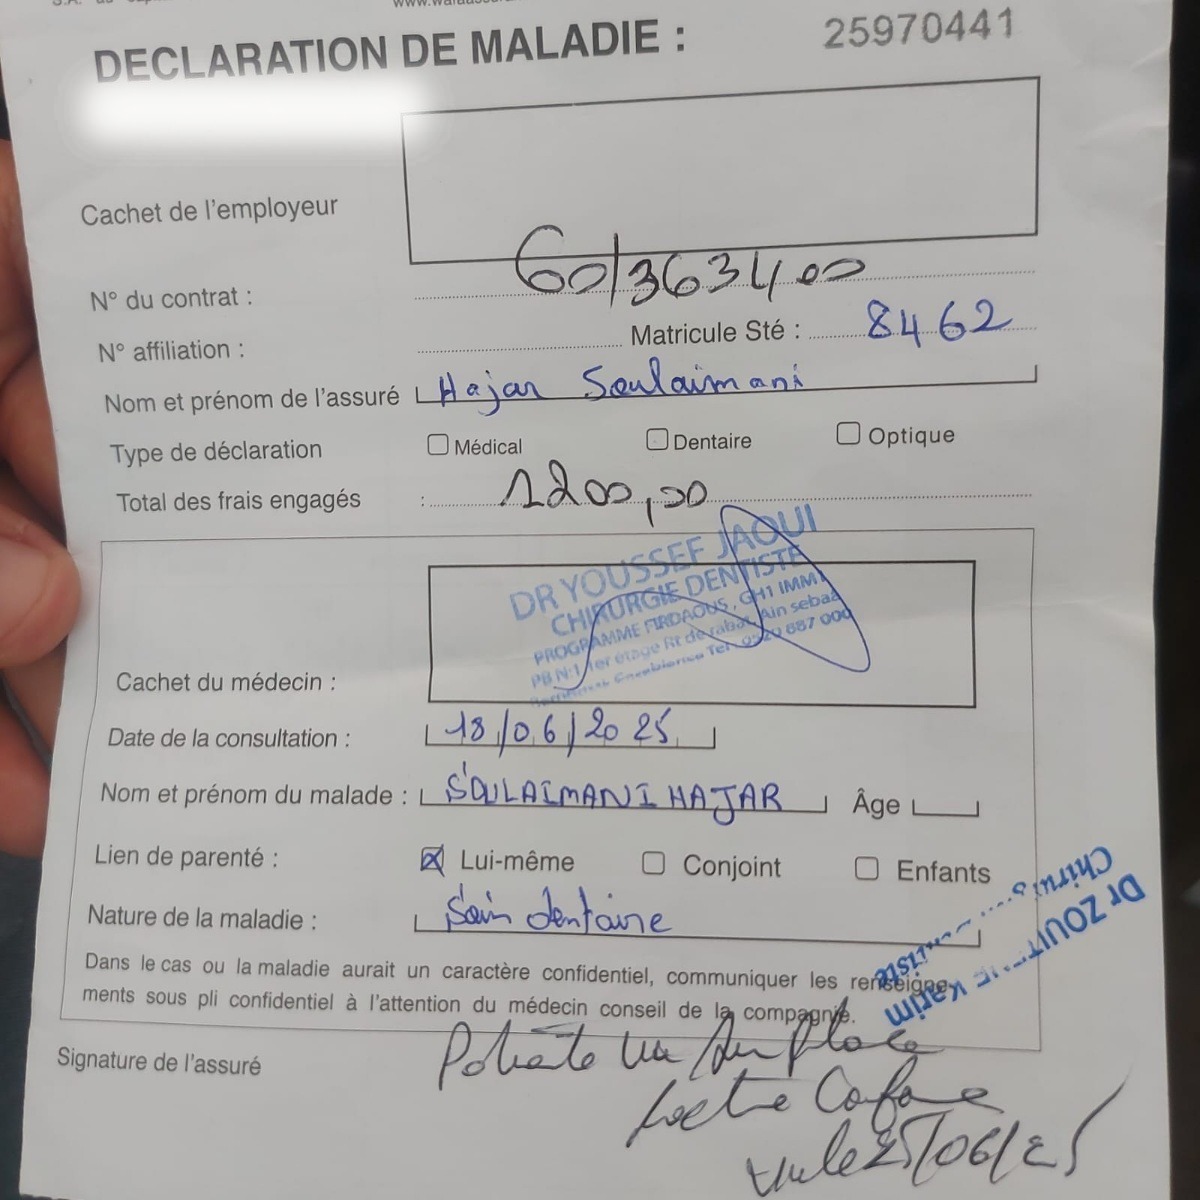 DECLARATION DE MALADIE : 25970441
Cachet de l'employeur
N° du contrat : 60/3634.00
N° affiliation : Matricule Sté : 8462
Nom et prénom de l'assuré Hajar Soulaimani
Type de déclaration Médical Dentaire Optique
Total des frais engagés : 1200,00
DR YOUSSEF JAOUI
CHIRURGIE DENTISTE
PROGRAMME FIRDAOUS, GH1 IMM1
PB N:1 1er étage Rt de rabat Ain sebaa
Casablanca Tel 0520 687 000
Cachet du médecin :
Date de la consultation : 18/06/2025
Nom et prénom du malade : SOULAIMANI HAJAR Âge
Lien de parenté : Lui-même Conjoint Enfants
Nature de la maladie : Soin dentaire
Dr ZOUI Karim
Dans le cas ou la maladie aurait un caractère confidentiel, communiquer les renseigne-
ments sous pli confidentiel à l'attention du médecin conseil de la compagnie.
Signature de l'assuré
vu le 25/06/25